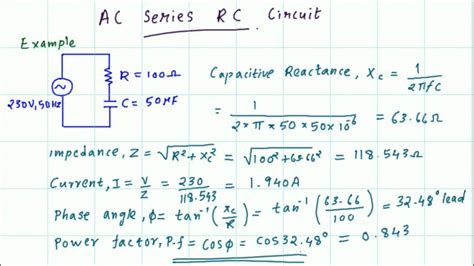 AC Series RC Circuit
Example
R = 100Ω
C = 50μF
230V, 50Hz
Capacitive Reactance, Xc = 1 / 2πfC
= 1 / 2×π×50×50×10⁻⁶ = 63.66Ω
Impedance, Z = √R²+Xc² = √100²+63.66² = 118.543Ω
Current, I = V/Z = 230/118.543 = 1.940A
Phase angle, φ = tan⁻¹(Xc/R) = tan⁻¹(63.66/100) = 32.48° lead
Power factor, P.f = cosφ = cos 32.48° = 0.843